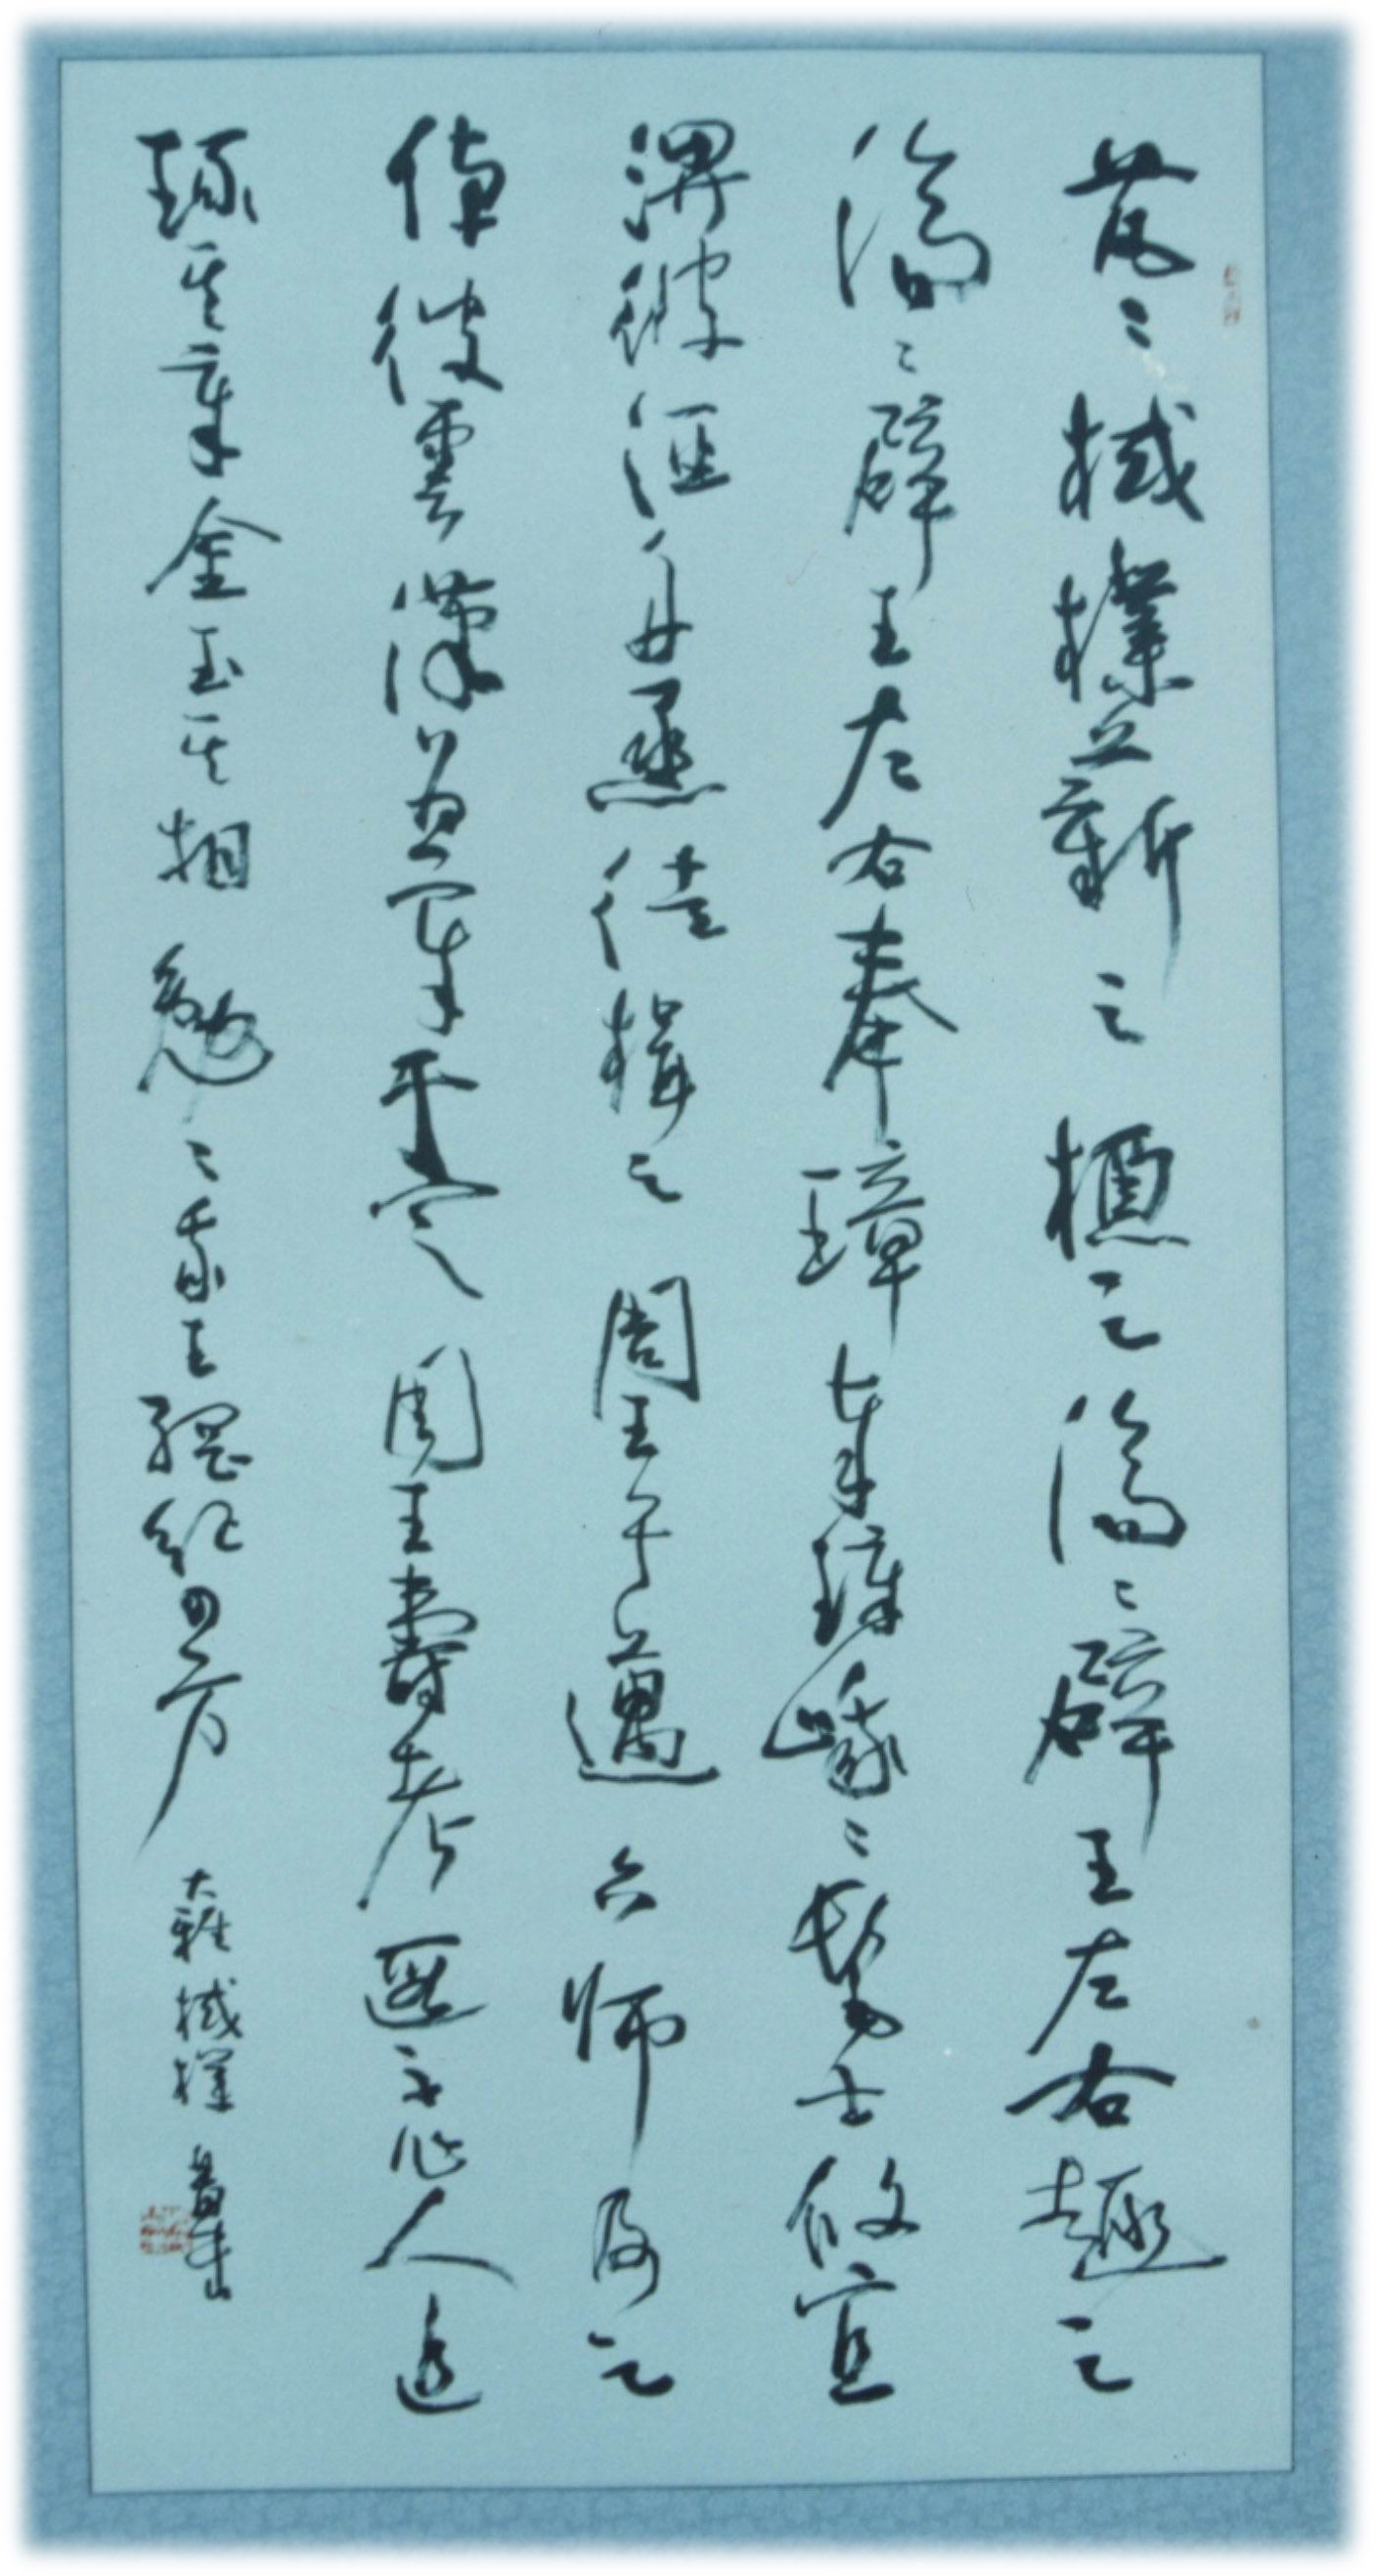 芃〻棫樸薪之槱之濟〻辟王左右趣之
濟〻辟王左右奉璋奉璋峨〻髦士攸宜
淠彼涇舟烝徒楫之周王于邁六師及之
倬彼雲漢為章于天周王壽考遐不作人追
琢其章金玉其相勉〻我王綱紀四方
大雅棫樸